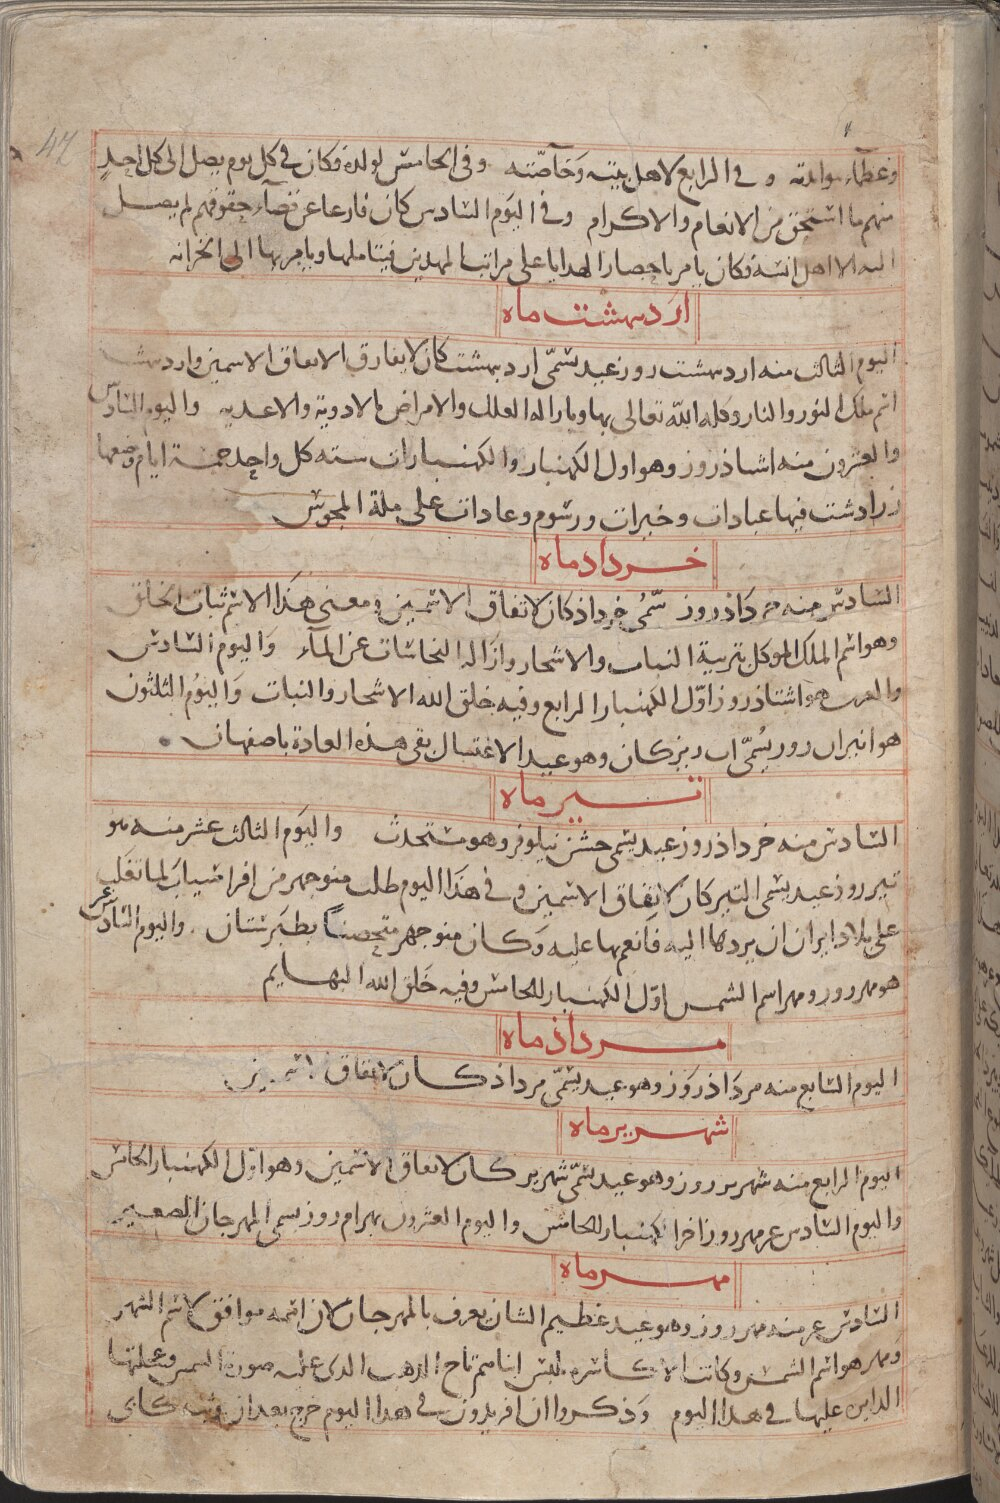 47
وعظماء موابدته و في الرابع لاهل بيته وخاصّته وفى الخامس لولده وكان في كل يوم يصل الى كل احد
منهم ما استحق من الانعام والاكرام وفى اليوم السادس كان فارغا عن قضآء حقوقهم لم يصل
اليه الا اهل انسه فكان يامر باحضار الهدايا على مراتب المهدين فيتاملها ويامر بها الى الخزانه
اردبهشت ماه
اليوم الثالث منه اردبهشت روز عيد يسّمى اردبهشت كان لا يفارق الاتفاق الاسمين واردبهشت
اسم ملك النور والنار وكله الله تعالى بها وبازاله العلل والامراض بالادوية والاغديه واليوم السادس
والعشرون منه اشتاذ روز وهو اول الكهنبار والكهنبارات سته كل واحد خمسة ايام وضعها
زرادشت فيها عبادات وخيرات ورسوم وعادات على ملة المجوس
خرداد ماه
السادس منه خرداذ روز سّمى خرداذكان لاتفاق الاسمين ومعنى هذا الاسم ثبات الخلق
وهو اسم الملك الموكل بتربية النبات والاشجار وازالة النجاسات عن المآء واليوم السادس
والعشرون هو اشتاذ روز اوّل الكهنبار الرابع وفيه خلق الله الاشجار والنبات واليوم الثلثون
هو انيران روز يُسّمى اب ريزكان وهو عيد الاغتسال بقى هذه العادة باصفهان
تير ماه
السادس منه خرداذ روز عيد يسمى جشن نيلوفر وهو مستحدث واليوم الثالث عشر منه هو
تير روز عيد يسمى التيركان لاتفاق الاسمين و في هذا اليوم طلب منوجهر من افراسياب لما تغلب
على بلاد ايران ان يردها اليه فانعم بها عليه وكان منوجهر متحصناً بطبرستان واليوم السادس عشر
هو مهر روز ومهر اسم الشمس اوّل الكهنبار الخامس وفيه خلق الله البهايم
مرداذ ماه
اليوم السابع منه مرداذ روز وهو عيد يسّمى مرداذكان لاتفاق الاسمين
شهرير ماه
اليوم الرابع منه شهرير روز وهو عيد يسّمى شهريركان لاتفاق الاسمين وهو اوّل الكهنبار الخامس
واليوم السادس عر مهر روز اخر الكهنبار الخامس واليوم العشرون بهرام روز سمى المهرجان الصغير
مهر ماه
السادس عر منه مهر روز وهو عيد عظيم الشان يعرف بالمهرجان لان اسمه موافق لاسم الشهر
ومهر هو اسم الشمس وكانت الاكاسره تلبس ابناءهم تاج الذهب الذى عليه صورة الشمس وعجلتها
الدايره عليها في هذا اليوم وذكروا ان افريدون في هذا اليوم خرج بعد ان وثب كابى